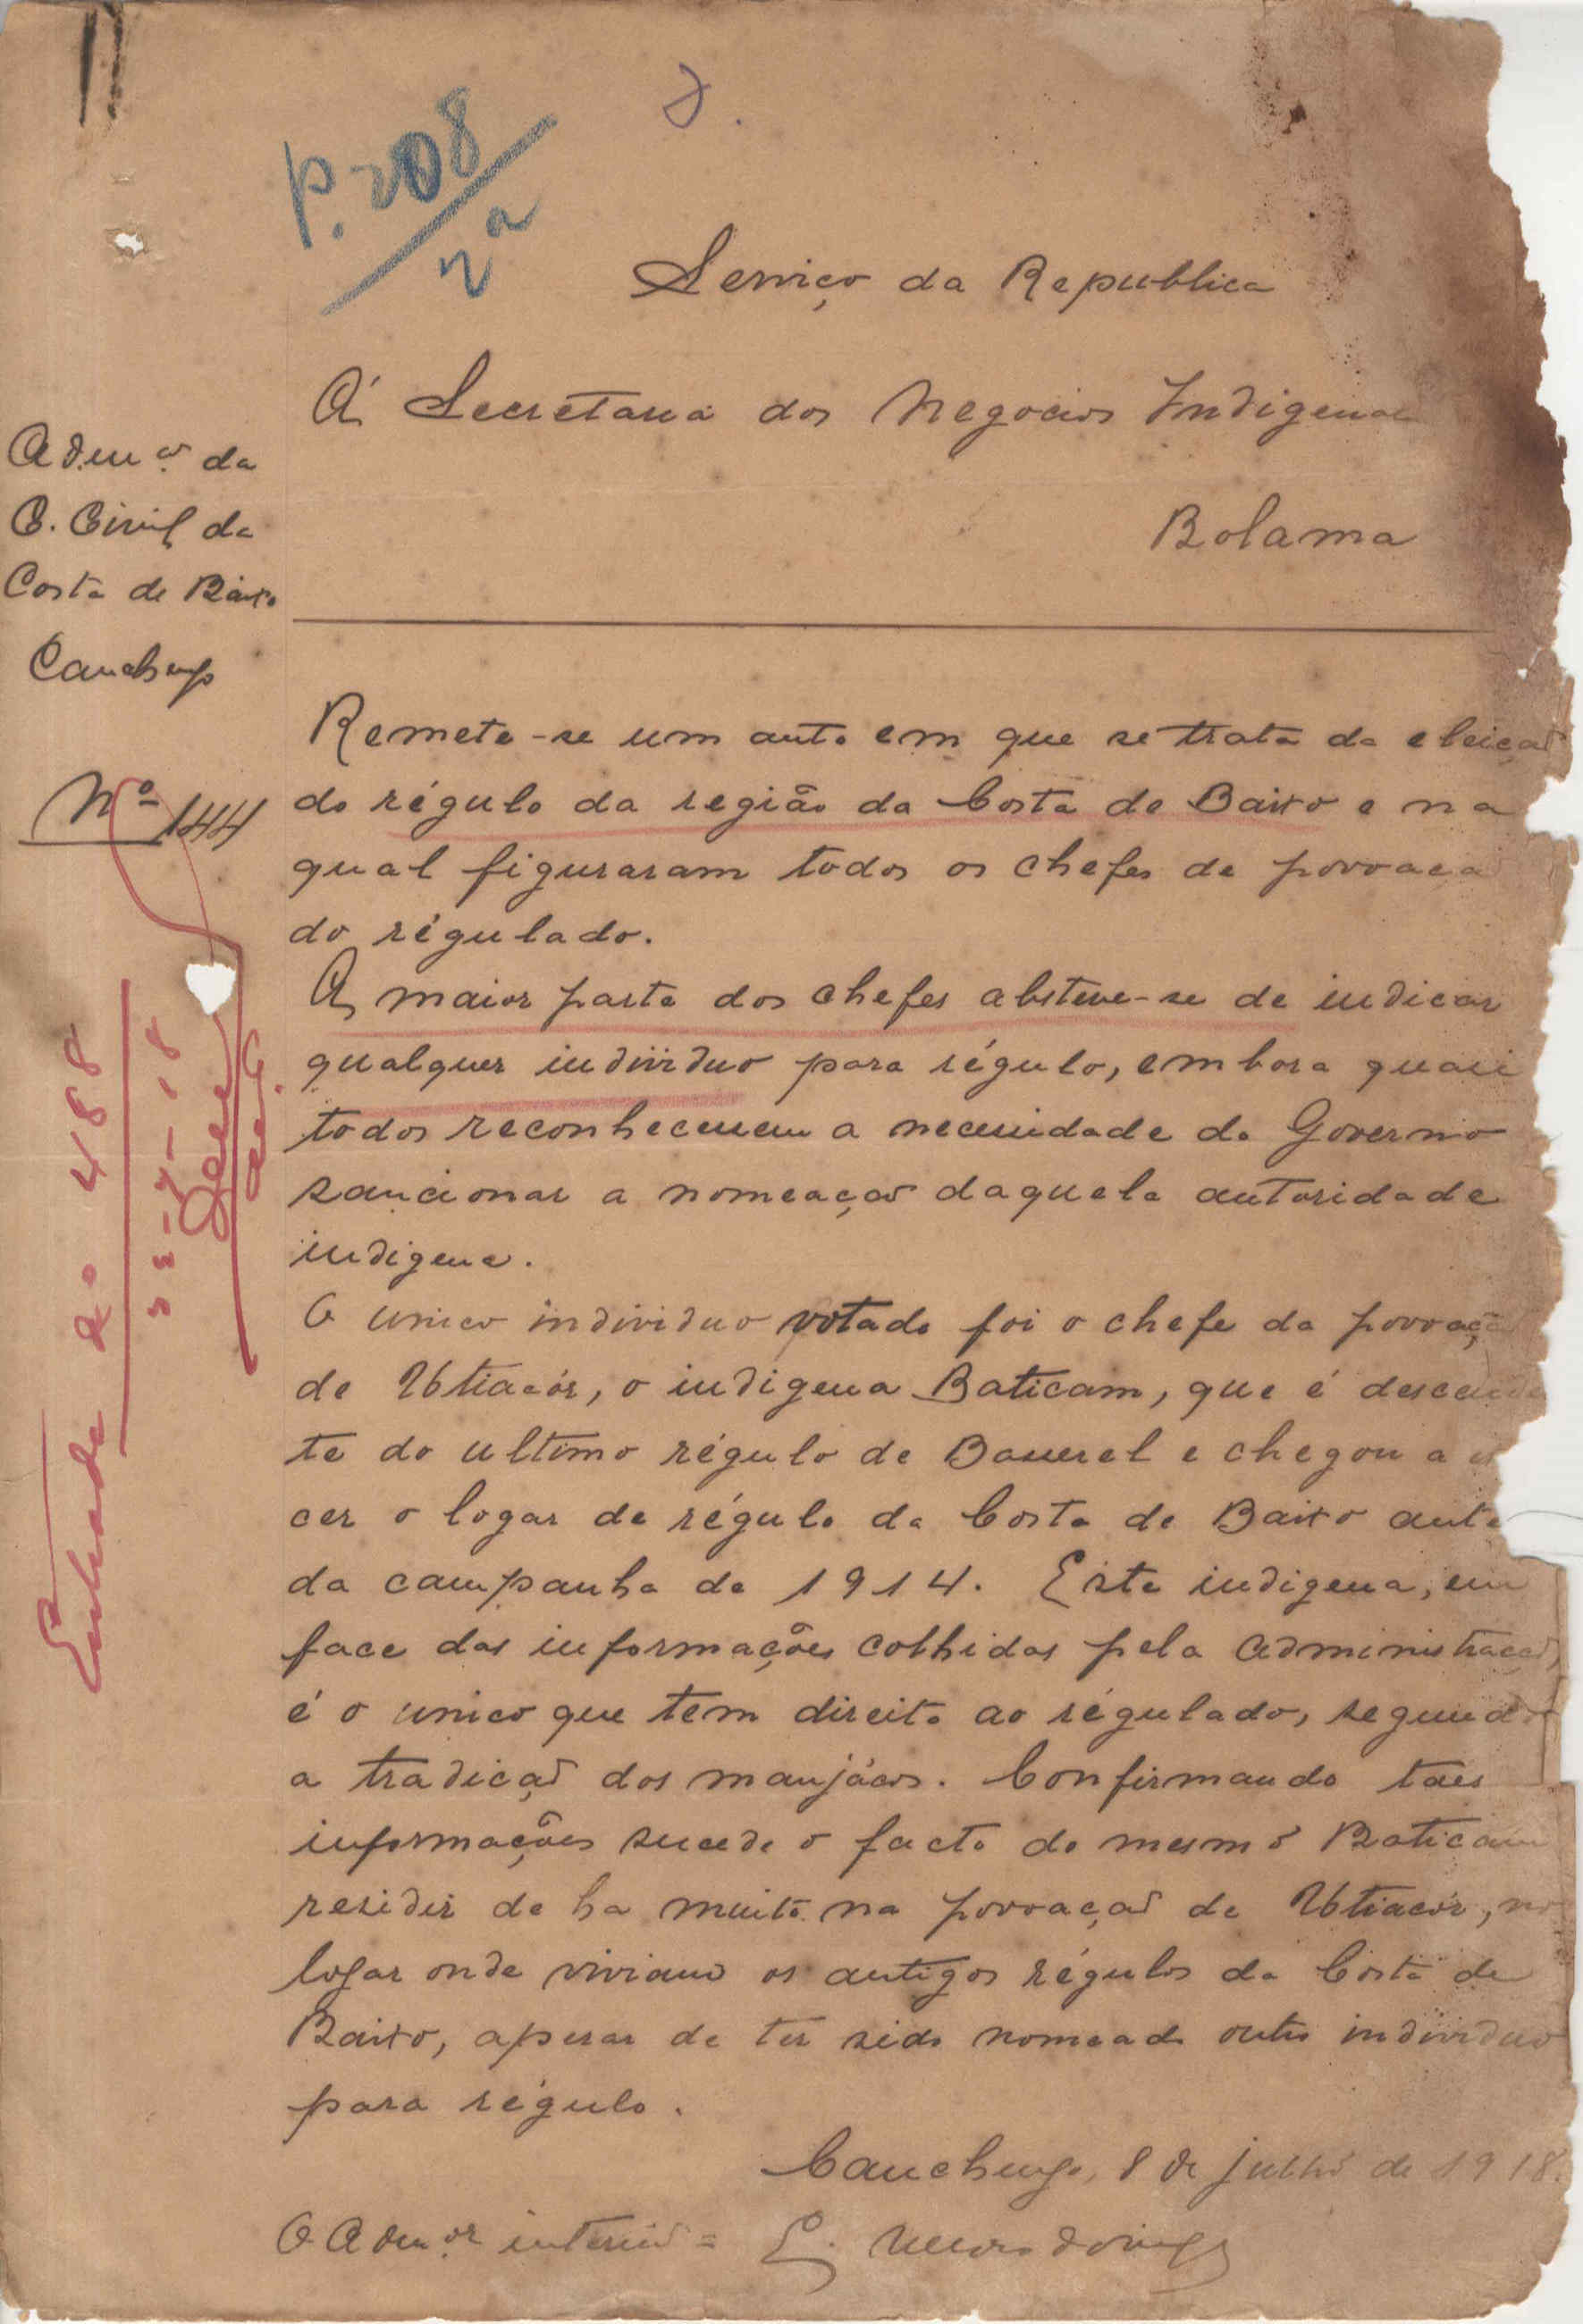 P. 208
2ª
Serviço da Republica
Á Secretaria dos Negocios Indigenas
Bolama
Admº da
C. Civil da
Costa de Baixo
Canchungo
Nº 144
Entrada
488
18
Remete-se um auto em que se trata da eleiçaõ
do régulo da região da Costa de Baixo e na
qual figuraram todos os chefes de povoaça
do régulado.
A maior parte dos chefes absteve-se de indicar
qualquer individuo para régulo, embora quasi
todos reconhecessem a necessidade do Governo
sancionar a nomeaçaõ daquela autoridade
indigena.
O unico individuo votado foi o chefe da povoaçã
de Utiacór, o indigena Baticam, que é descende
te do ultimo régulo de Basserel e chegou a
cer o logar de régulo da Costa de Baixo ante
da campanha de 1914. Este indigena, em
face das informações colhidas pela administraçaõ,
é o unico que tem direito ao régulado, segundo
a tradiçaõ dos manjácos. Confirmando taes
informações sucede o facto do mesmo Baticam
residir de ha muito na povoaçaõ de Utiacór, no
logar onde viviam os antigos régulos da Costa de
Baixo, apesar de ter sido nomeado outro individuo
para régulo.
Canchungo, 8 de julho de 1918.
O Admºr interino =